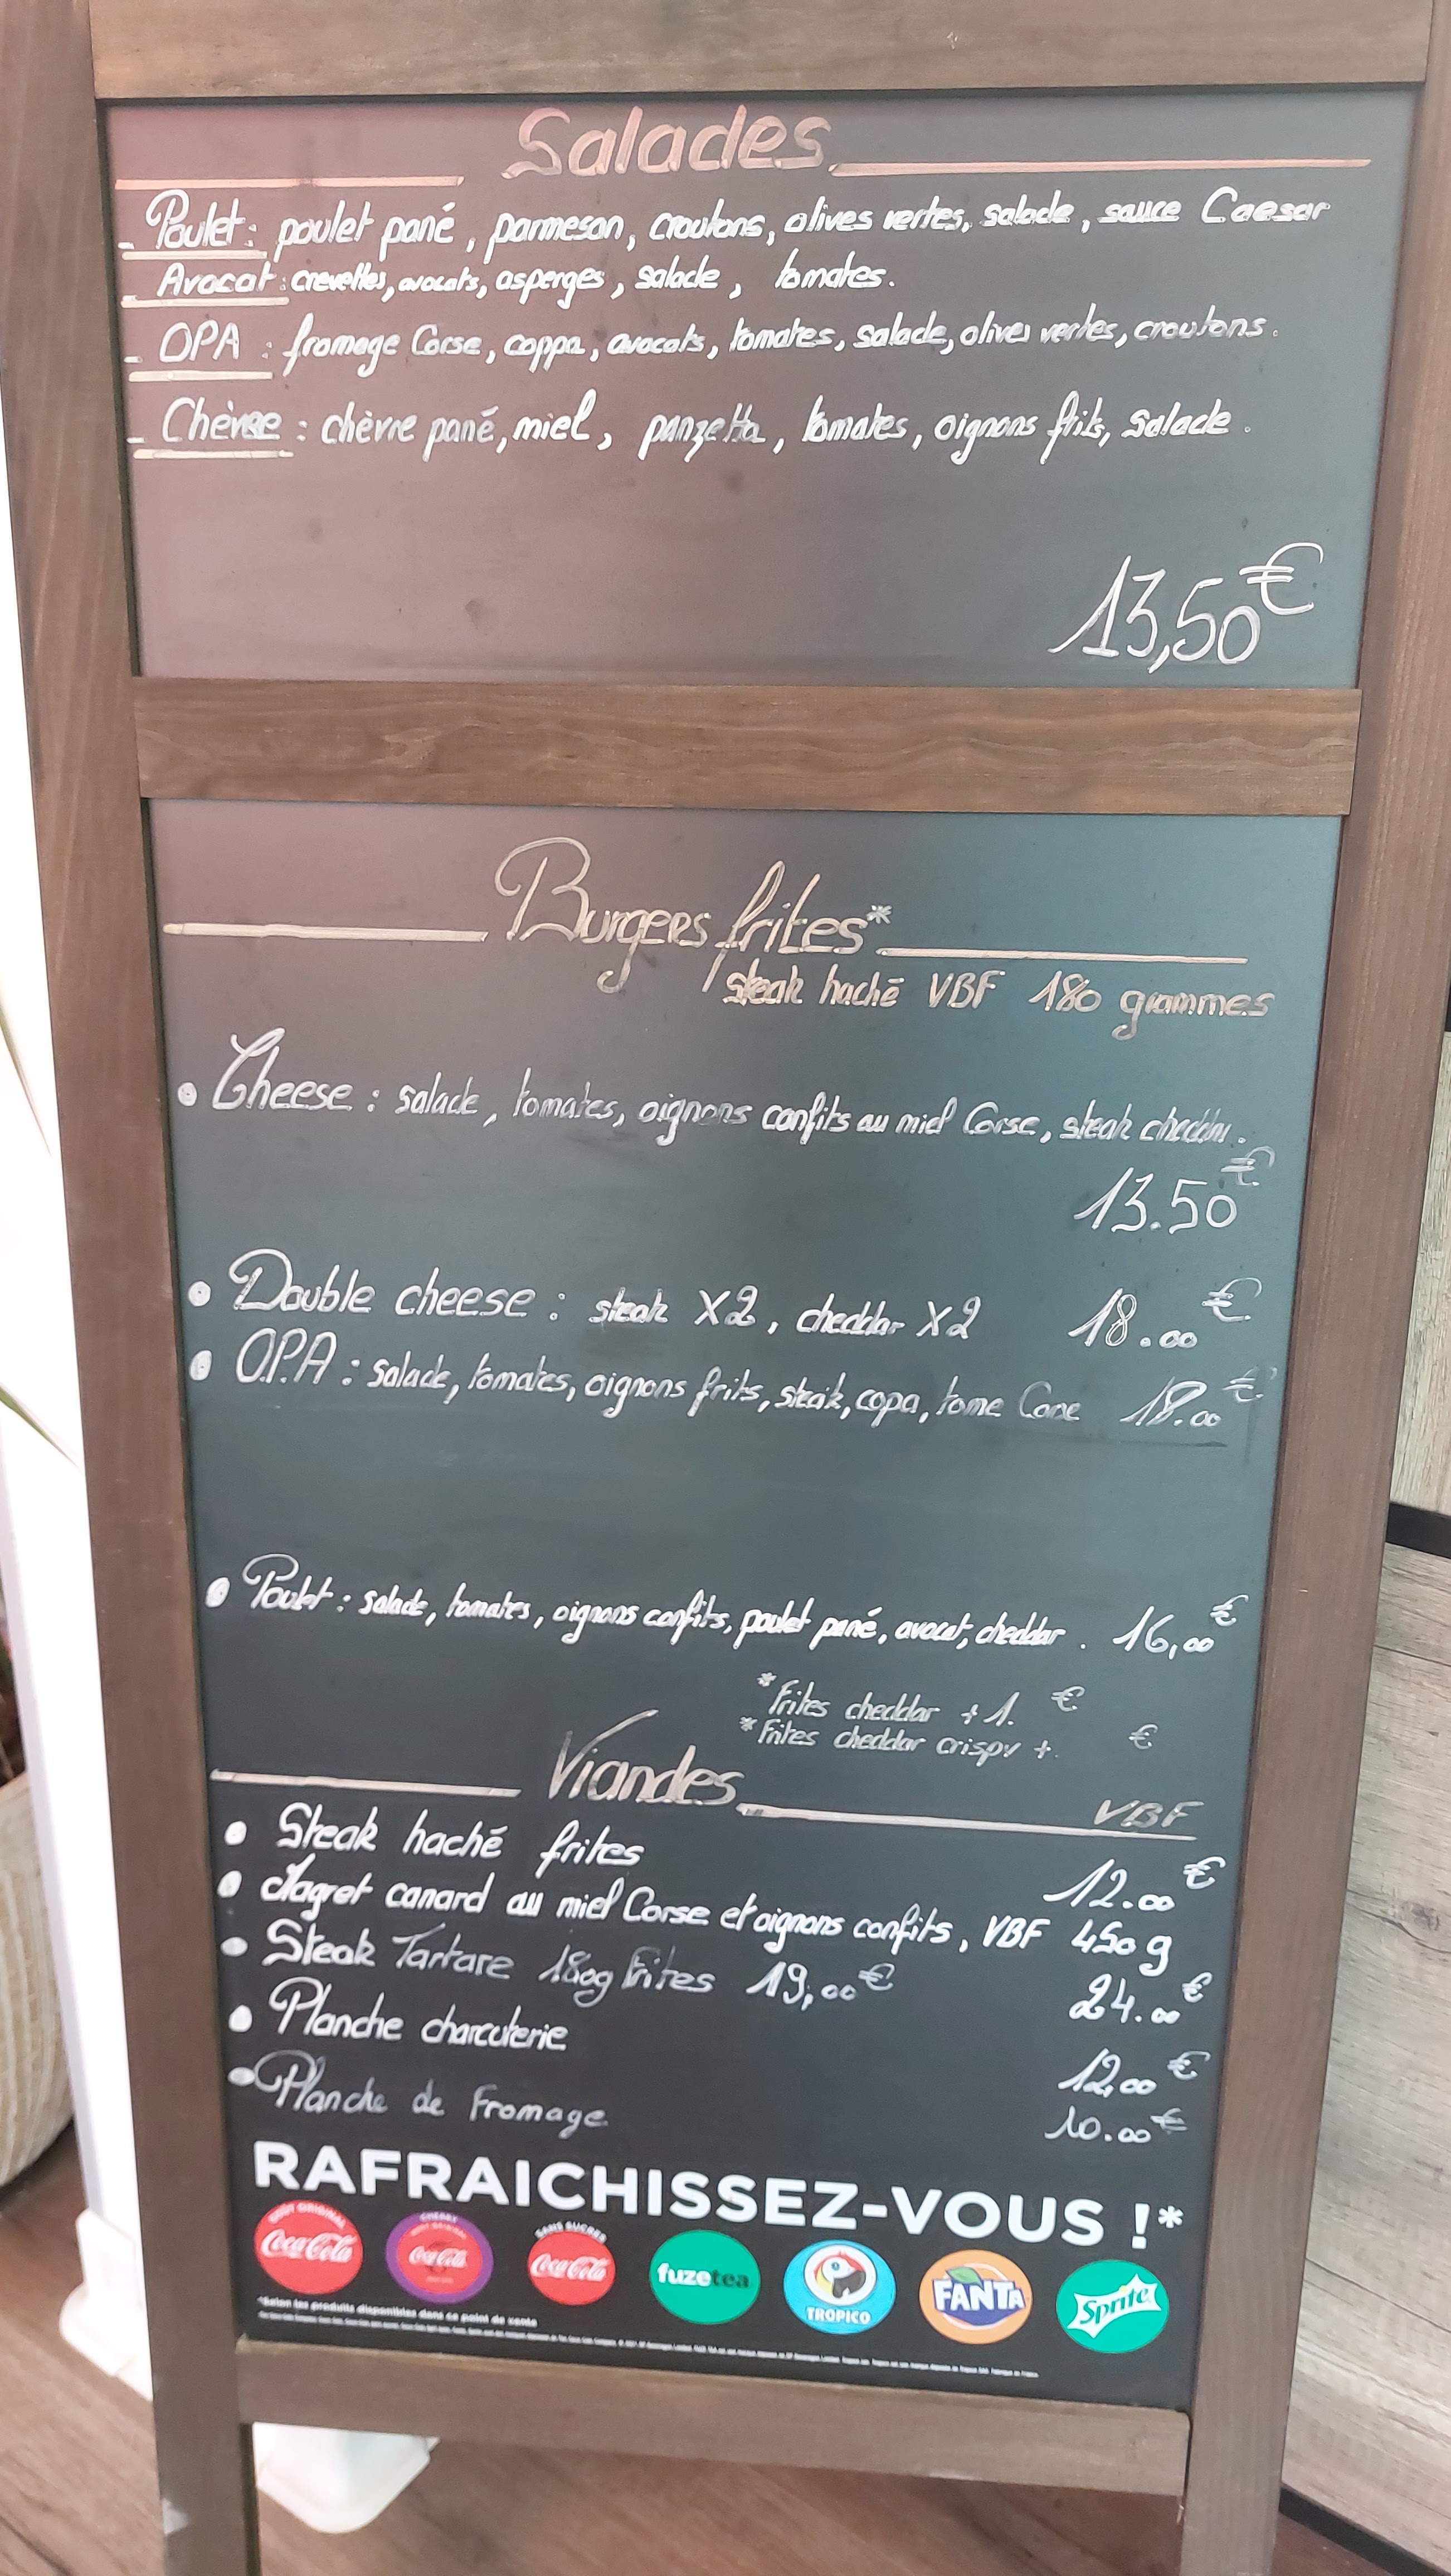 Salades
- Poulet : poulet pané, parmesan, croutons, olives vertes, salade, sauce Caesar
- Avocat : crevettes, avocats, asperges, salade, tomates.
- OPA : fromage Corse, coppa, avocats, tomates, salade, olives vertes, croutons.
- Chèvre : chèvre pané, miel, panzetta, tomates, oignons frits, salade.
13,50€
Burgers frites*
steak haché VBF 180 grammes
• Cheese : salade, tomates, oignons confits au miel Corse, steak cheddar.
13.50€
• Double cheese : steak X2, cheddar X2 18.00€
• O.P.A : salade, tomates, oignons frits, steak, copa, tome Corse 18.00€
• Poulet : salade, tomates, oignons confits, poulet pané, avocat, cheddar. 16,00€
*Frites cheddar + 1. €
*Frites cheddar crispy +. €
Viandes VBF
• Steak haché frites 12.00€
• Magret canard au miel Corse et oignons confits, VBF 450g
24.00€
• Steak Tartare 180g Frites 19,00€
• Planche charcuterie 12,00€
• Planche de Fromage 10.00€
RAFRAICHISSEZ-VOUS !*
GOÛT ORIGINAL CHERRY SANS SUCRES
Coca-Cola Coca-Cola Coca-Cola fuzetea TROPICO FANTA Sprite
*Selon les produits disponibles dans ce point de vente